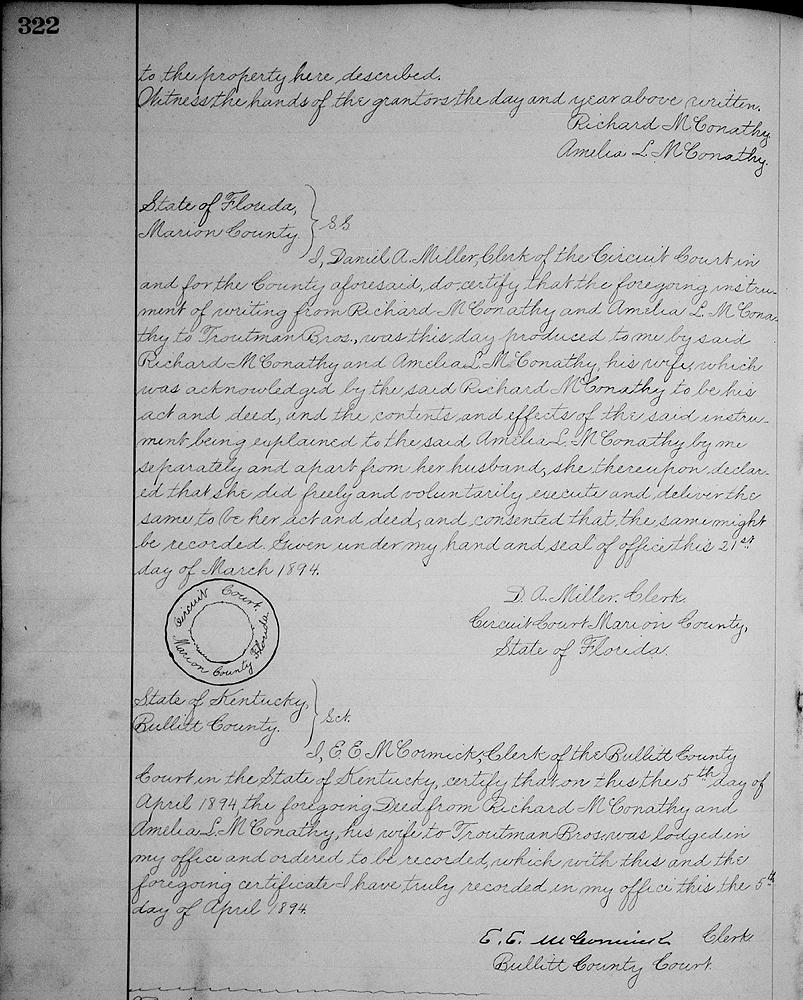 322
to the property here described.
Witness the hands of the grantors the day and year above written.
Richard McConathy
Amelia L. McConathy.
State of Florida,
Marion County } S.S
I, Daniel A. Miller, Clerk of the Circuit Court in
and for the County aforesaid, do certify that the foregoing instru-
ment of writing from Richard McConathy and Amelia L. McCona-
thy to Troutman Bros., was this day produced to me by said
Richard McConathy and Amelia L. McConathy, his wife, which
was acknowledged by the said Richard McConathy to be his
act and deed, and the contents and effects of the said instru-
ment being explained to the said Amelia L. McConathy by me
separately and apart from her husband, she thereupon declar-
ed that she did freely and voluntarily execute and deliver the
same to be her act and deed, and consented that the same might
be recorded. Given under my hand and seal of office this 21st
day of March 1894.
Circuit Court.
Marion County Florida.
D. A. Miller, Clerk.
Circuit Court Marion County,
State of Florida.
State of Kentucky,
Bullitt County. } Sct.
I, E E McCormick, Clerk of the Bullitt County
Court in the State of Kentucky, certify that on this the 5th day of
April 1894, the foregoing Deed from Richard McConathy and
Amelia L. McConathy, his wife to Troutman Bros, was lodged in
my office and ordered to be recorded, which with this and the
foregoing certificate I have truly recorded in my office this the 5th
day of April 1894.
E. E. McCormick Clerk
Bullitt County Court.